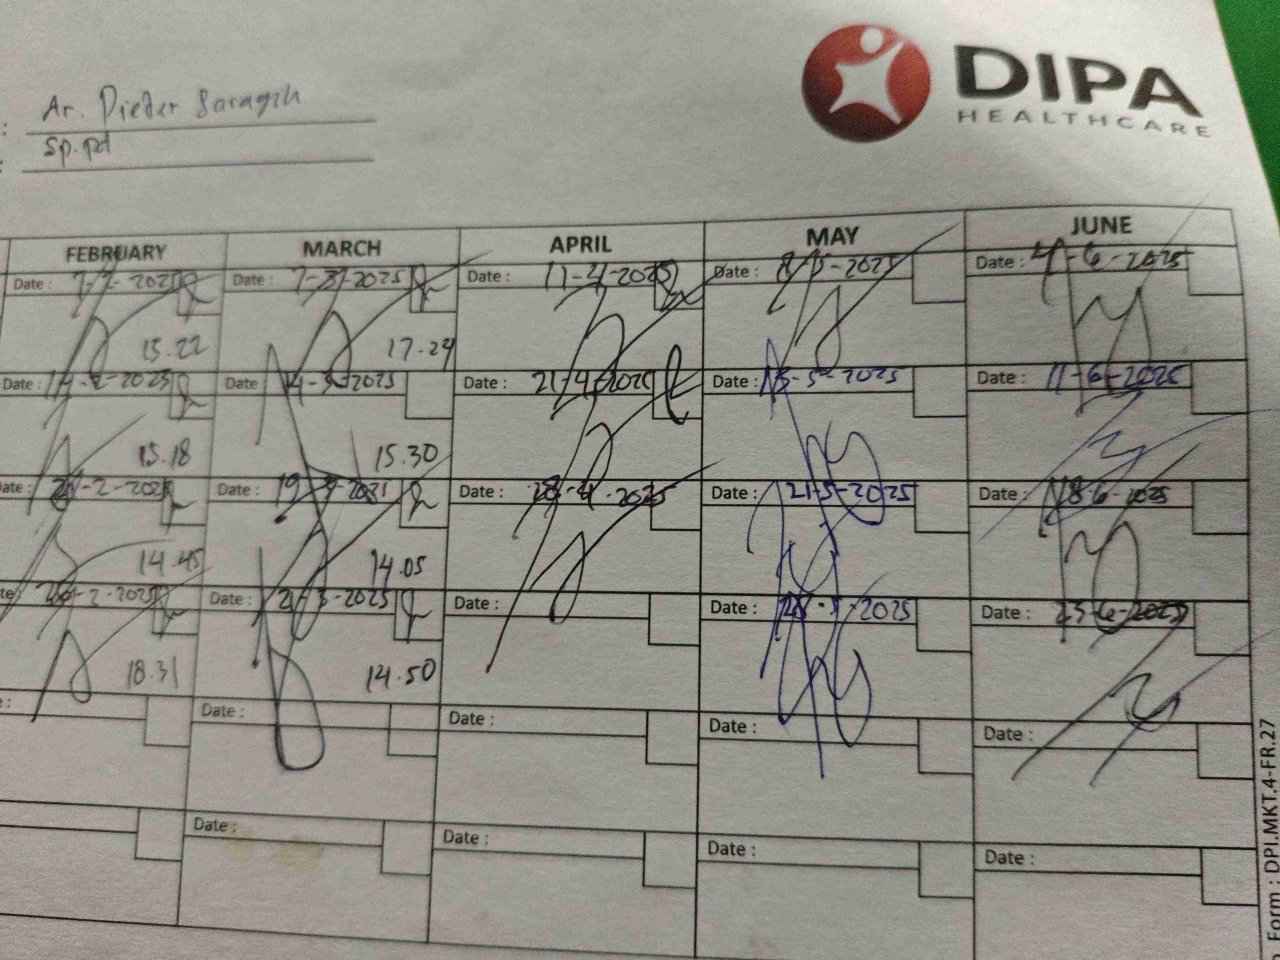 DIPA
HEALTHCARE
: Dieter Saragih
: Sp.pd
FEBRUARY MARCH APRIL MAY JUNE
Date : 7-2-2025 Date : 7-3-2025 Date : 11-4-2025 Date : 8-5-2025 Date : 4-6-2025
15.22 17.24
Date : 14-2-2025 Date : 14-3-2025 Date : 21-4-2025 Date : 15-5-2025 Date : 11-6-2025
15.18 15.30
Date : Date : Date : 28-4-2025 Date : 21-5-2025 Date : 18-6-2025
14.45 14.05
Date : 21-3-2025 Date : Date : 28-5-2025 Date : 25-6-2025
18.31 14.50
Date : Date : Date : Date :
Date : Date : Date : Date :
Form : DPI.MKT.4-FR.27